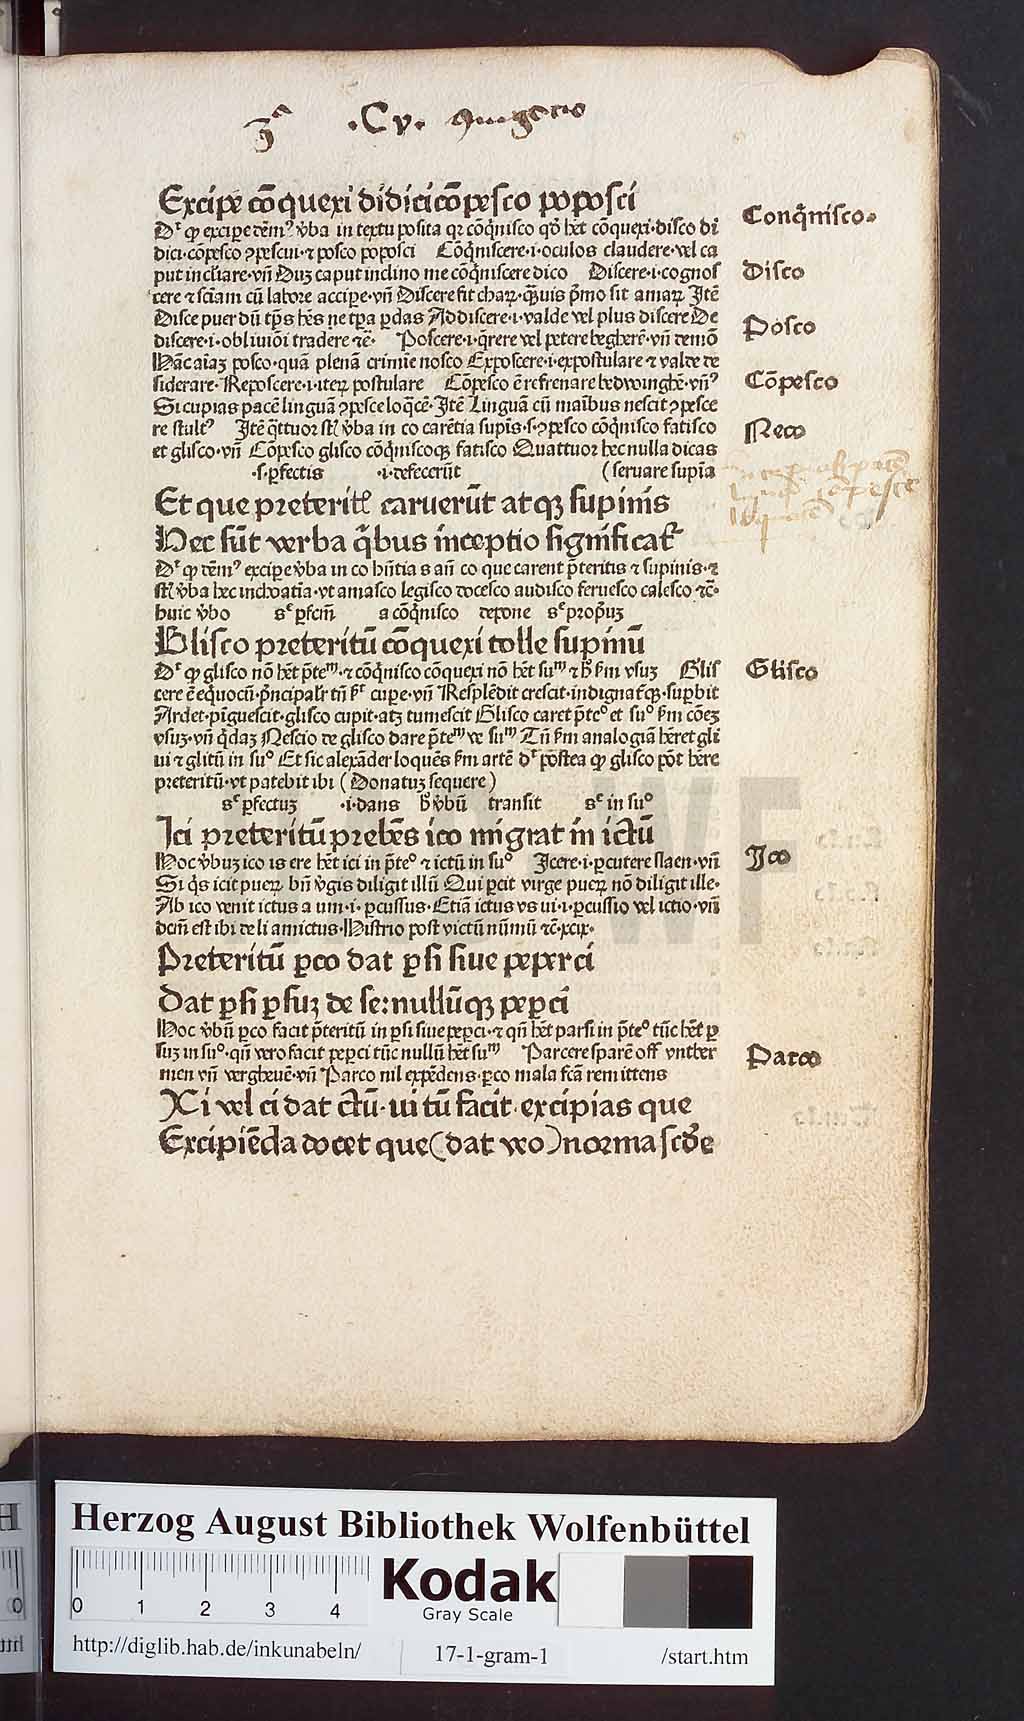 .Cv.
Excipe cōquexi didici cōpesco poposci
Dr ꝙ excipe dēmꝰ v̄ba in textu posita qꝛ cōq̄nisco qd̄ hēt cōquexi·disco di
dici·cōpesco ꝯpescui·⁊ posco poposci Cōq̄niscere·i·oculos claudere·vel ca
put inclīare·vn̄ Duꝫ caput inclino me cōq̄niscere dico Discere·i·cognos
cere ⁊ sciam cū labore accipe·vn̄ Discere fit charꝝ·qᷓuis pͥmo sit amarꝝ Itē
Disce puer dū tp̄s hēs ne tꝑa ꝑdas Addiscere·i·valde vel plus discere De
discere·i·obliuiōi tradere ⁊ē· Poscere·i·q̄rere vel petere begherē·vn̄ demō
Nāc aīaꝫ posco·quā plenā crimīe nosco Exposcere·i·expostulare ⁊ valde de
siderare·Reposcere·i·iterꝝ postulare Cōpesco ē refrenare bedwinghē·vn̄ꝰ
Si cupias pacē linguā ꝯpesce loq̄cē·Itē Linguā cū maībus nescit ꝯpesce
re stultꝰ Itē q̄ttuor st̄ v̄ba in co carētia supīs·s·ꝯpesco cōq̄nisco fatisco
et glisco·vn̄ Cōpesco glisco cōq̄niscoqꝫ fatisco Quattuor hec nulla dicas
·s·ꝑfectis ·i·defecerūt (seruare supīa
Et que preteritꝭ caruerūt atqꝫ supinis
Hec sūt verba q̄bus inceptio significatᷣ
Dr ꝙ dēmꝰ excipe v̄ba in co hn̄tia s an̄ co que carent p̄teritis ⁊ supinis·⁊
st̄ v̄ba hec inchoatīa·vt amasco legisco docesco audisco feruesco calesco ⁊c̄·
huic v̄bo sᵉ ꝑfcm̄ a cōq̄nisco depone sᵉ propͥuꝫ
Glisco preteritū cōquexi tolle supinū
Dr ꝙ glisco nō hēt p̄teᵐ·⁊ cōq̄nisco cōquexi nō hēt suᵐ ⁊ h̄ km̄ vsuꝫ Glis
cere ē eq̄uocū·p̄ncipalr tn̄ kr̄ cupe·vn̄ Resplēdit crescit·indignatᷣqꝫ·supbit
Ardet·pīguescit·glisco cupit·atꝫ tumescit Glisco caret p̄tᵉᵒ et suᵒ km̄ cōeꝫ
vsuꝫ·vn̄ q̄daꝫ Nescio de glisco dare p̄teᵐ ve suᵐ Tn̄ km̄ analogiā hēret gli
ui ⁊ glitū in suᵒ Et sic alexāder loquēs km̄ artē dr̄ postea ꝙ glisco pōt hēre
preteritū·vt patebit ibi (Donatuꝫ sequere)
sᵉ ꝑfectuꝫ ·i·dans h̄ v̄bū transit sᵉ in suᵒ
Ici preteritū prebēs ico migrat in ictū
Hoc v̄buꝫ ico is ere hēt ici in p̄teᵒ ⁊ ictū in suᵒ Icere·i·ꝑcutere slaen·vn̄
Si q̄s icit puerꝝ bn̄ v̄gis diligit illū Qui ꝑcit virge puerꝝ nō diligit ille·
Ab ico venit ictus a um·i·ꝑcussus·Etiā ictus vs ui·i·ꝑcussio vel ictio·vn̄
dcm̄ est ibi de li amictus·Histrio post victū nūmū ⁊c̄·xcix·
Preteritū ꝑco dat ꝑsi siue peperci
Dat ꝑsi ꝑsuꝫ de se:nullūqꝫ peꝑci
Hoc v̄bū ꝑco facit p̄teritū in ꝑsi siue peꝑci·⁊ qn̄ hēt parsi in p̄teᵒ tūc hēt ꝑ
suꝫ in suᵒ·qn̄ vero facit peꝑci tūc nullū hēt suᵐ Parcere sparē off vntfer
men vn̄ vergheuē·vn̄ Parco nil expēdens·ꝑco mala fcā remittens
Xi vel ci dat ctū·ui tū facit·excipias que
Excipiēda docet que(dat veo)norma scd̄e
Conq̄nisco.
Disco
Posco
Cōpesco
Neco
Glisco
Ico
Parco
Herzog August Bibliothek Wolfenbüttel
0 1 2 3 4
Kodak
Gray Scale
http://diglib.hab.de/inkunabeln/ 17-1-gram-1 /start.htm